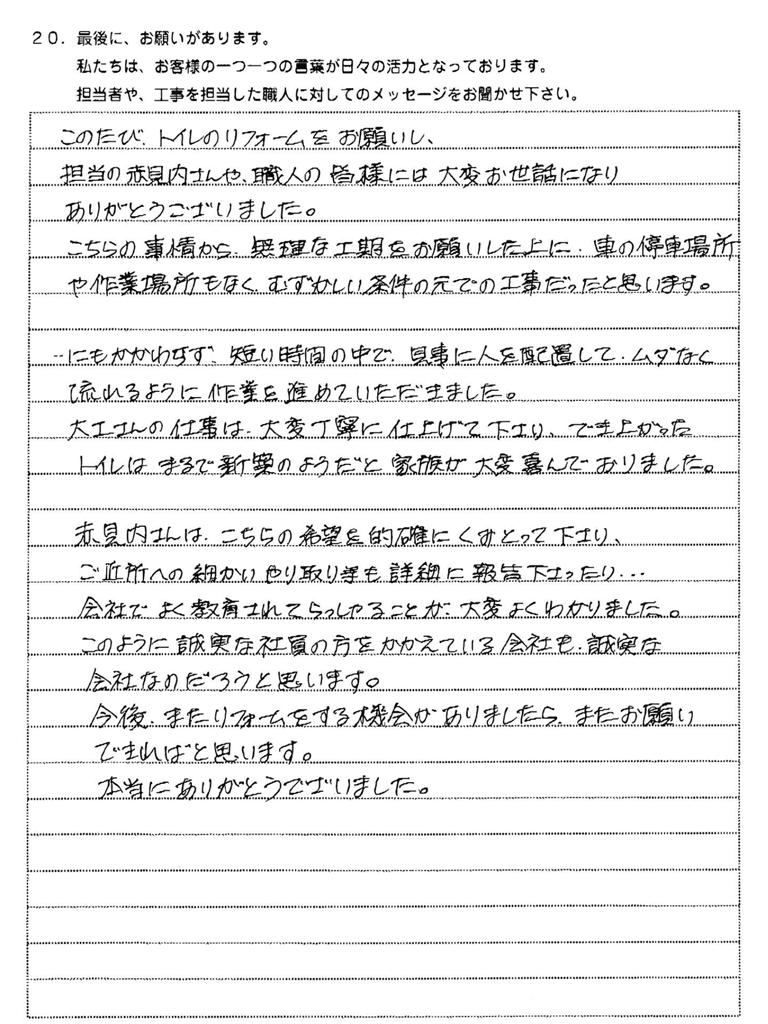 20．最後に、お願いがあります。
私たちは、お客様の一つ一つの言葉が日々の活力となっております。
担当者や、工事を担当した職人に対してのメッセージをお聞かせ下さい。
このたび、トイレのリフォームをお願いし、
担当の赤見内さんや、職人の皆様には大変お世話になり
ありがとうございました。
こちらの事情から、無理な工期をお願いした上に、車の停車場所
や作業場所もなく、むずかしい条件の元での工事だったと思います。
…にもかかわらず、短い時間の中で、見事に人を配置して、ムダなく
流れるように作業を進めていただきました。
大工さんの仕事は、大変丁寧に仕上げて下さり、でき上がった
トイレはまるで新築のようだと家族が大変喜んでおりました。
赤見内さんは、こちらの希望を的確にくみとって下さり、
ご近所への細かいやり取り等も詳細に報告下さったり…
会社でよく教育されてらっしゃることが、大変よくわかりました。
このように誠実な社員の方をかかえている会社も、誠実な
会社なのだろうと思います。
今後、またリフォームをする機会がありましたら、またお願い
できればと思います。
本当にありがとうございました。